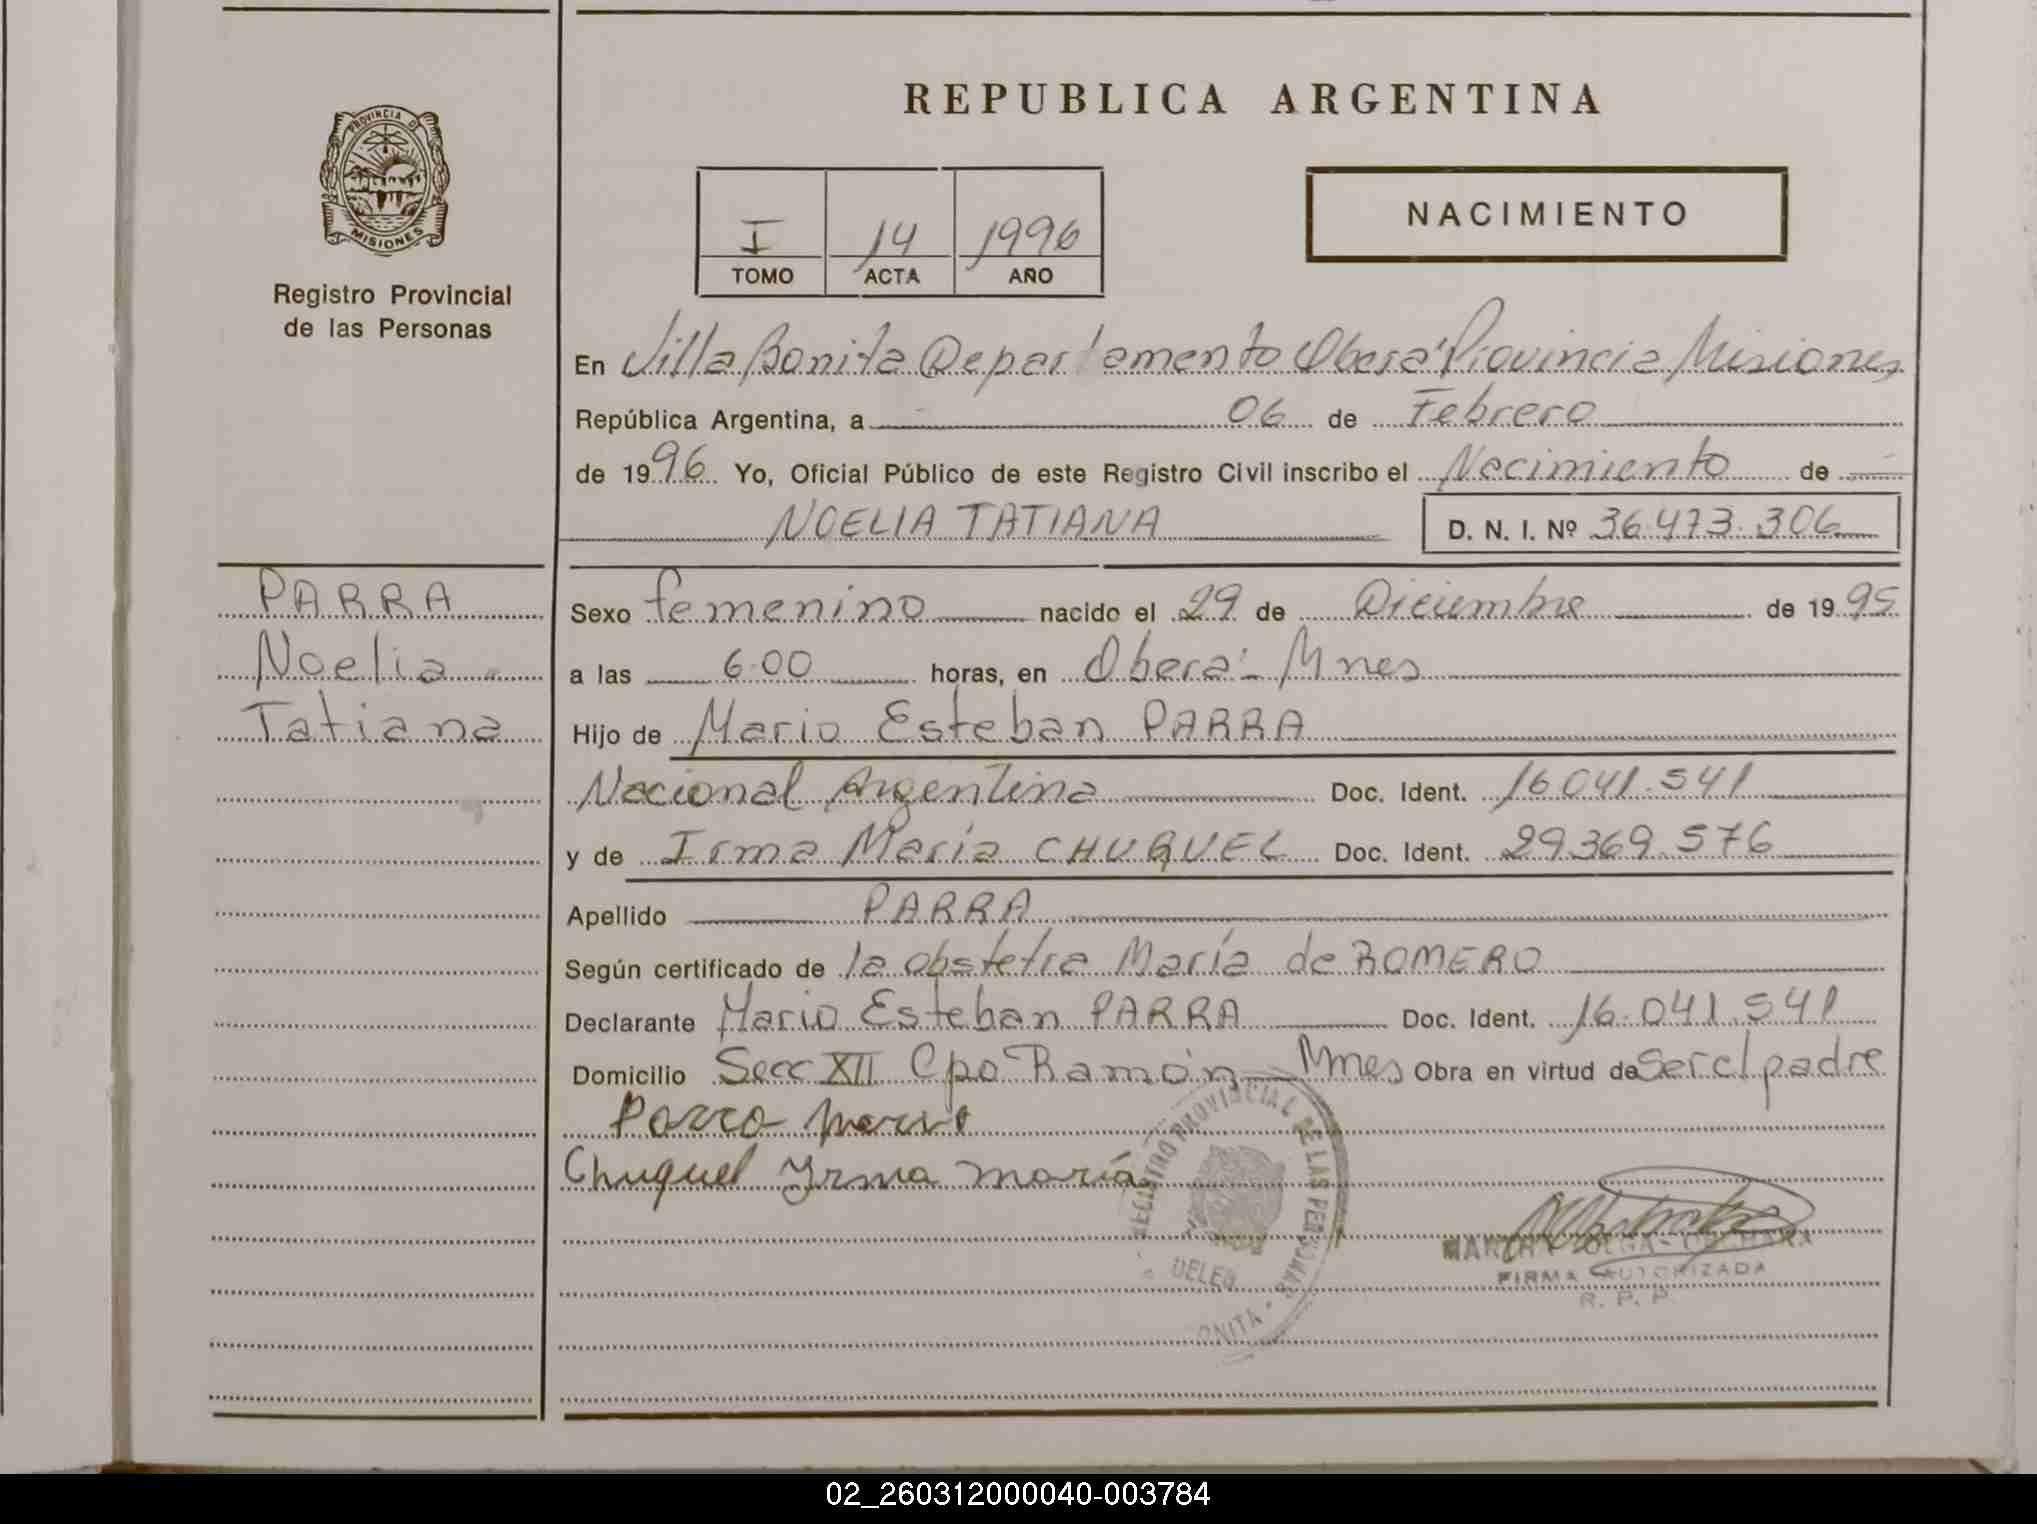 REPUBLICA ARGENTINA
PROVINCIA DE
MISIONES
Registro Provincial
de las Personas
I 14 1996
TOMO ACTA AÑO
NACIMIENTO
En Villa Bonita Departamento Oberá Provincia Misiones,
República Argentina, a 06 de Febrero
de 1996 Yo, Oficial Público de este Registro Civil inscribo el Nacimiento de
NOELIA TATIANA D. N. I. Nº 36.473.306
PARRA
Noelia
Tatiana
Sexo femenino nacido el 29 de Diciembre de 1995
a las 6.00 horas, en Oberá - Mnes
Hijo de Mario Esteban PARRA
Nacional Argentina Doc. Ident. 16.041.541
y de Irma María CHUQUEL Doc. Ident. 29.369.576
Apellido PARRA
Según certificado de la obstetra María de ROMERO
Declarante Mario Esteban PARRA Doc. Ident. 16.041.541
Domicilio Secc XII Cpo Ramón - Mnes Obra en virtud de ser el padre
Parra Mario
Chuquel Yrma maría
REGISTRO PROVINCIAL DE LAS PERSONAS
DELEG
ONITA
OLGA
FIRMA AUTORIZADA
R. P. P.
02_260312000040-003784